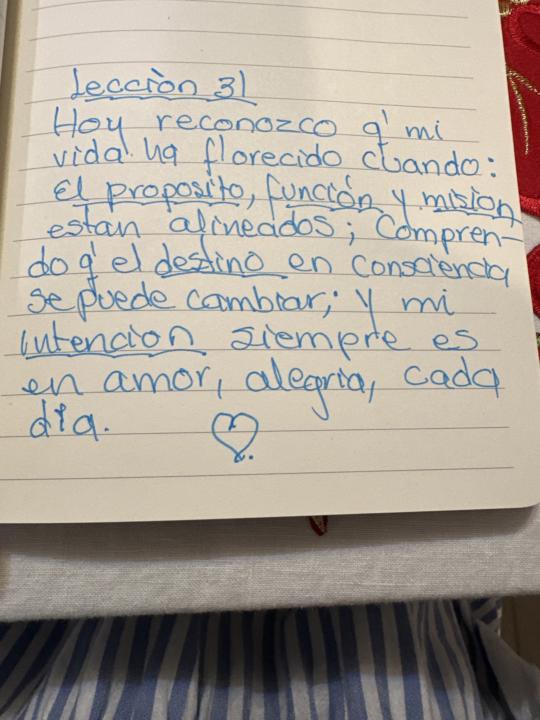 Lección 31
Hoy reconozco q' mi
vida ha florecido cuando:
El proposito, función y mision
estan alineados; Compren-
do q' el destino en consciencia
se puede cambiar; y mi
intencion siempre es
en amor, alegria, cada
día.